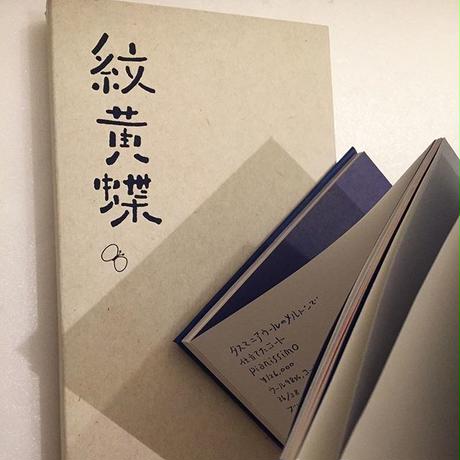 紋黄蝶
タスマニアウールのメルトンで
仕立てたコート
pianissimo
¥126,000
ウール98%、
36/38